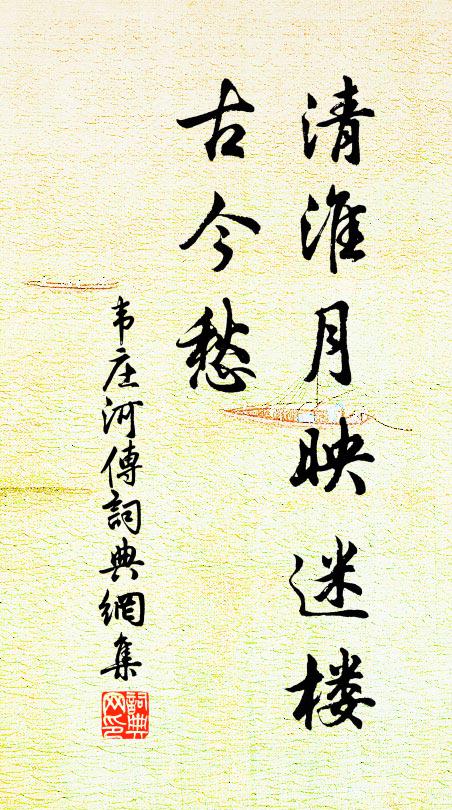 清淮月映迷楼
古今愁
韦庄河傳詞典網集
詞典网印